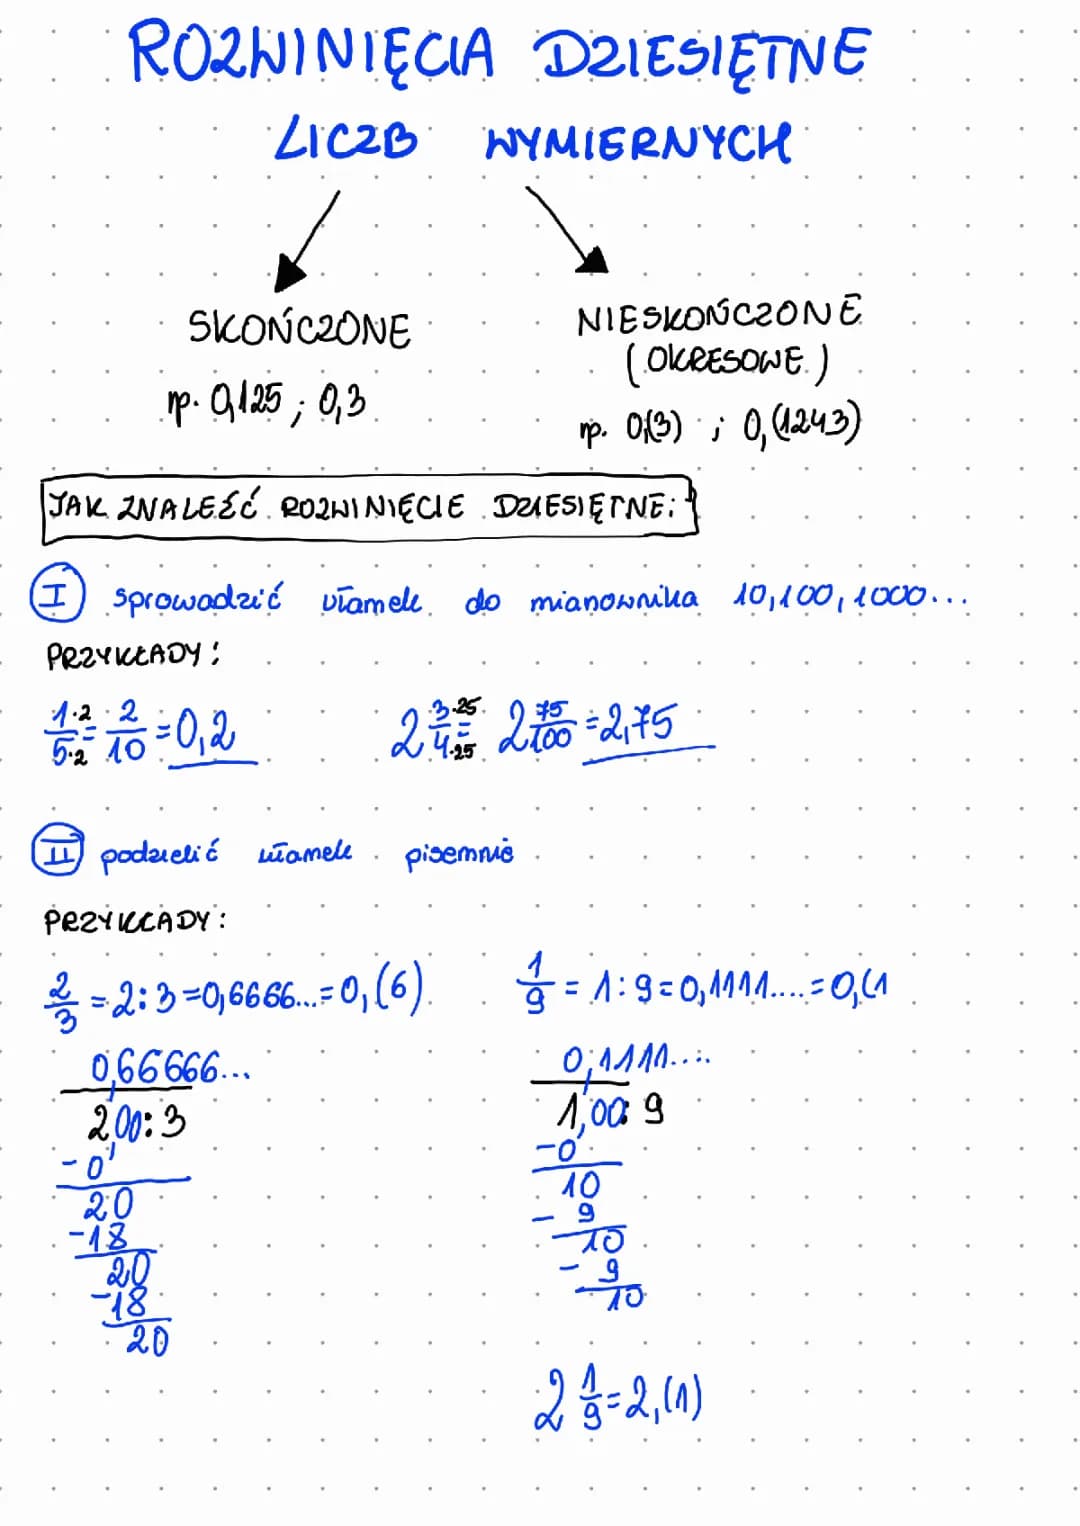 ROZWINIĘCIA DZIESIĘTNE
LICZB WYMIERNYCH
SKOŃCZONE
np. 0,125 ; 0,3
NIESKOŃCZONE
(OKRESOWE)
np. 0,(3) ; 0,(1243)
JAK ZNALEŹĆ ROZWINIĘCIE DZIESIĘTNE:
I sprowadzić ułamek do mianownika 10,100,1000...
PRZYKŁADY:
1·2/5·2 = 2/10 = 0,2
2 3·25/4·25 = 2 75/100 = 2,75
II podzielić ułamek pisemnie
PRZYKŁADY:
2/3 = 2:3 = 0,6666... = 0,(6)
0,66666...
2,00:3
-0
20
-18
20
-18
20
1/9 = 1:9 = 0,1111.... = 0,(1
0,1111....
1,00:9
-0
10
- 9
10
- 9
10
2 1/9 = 2,(1)